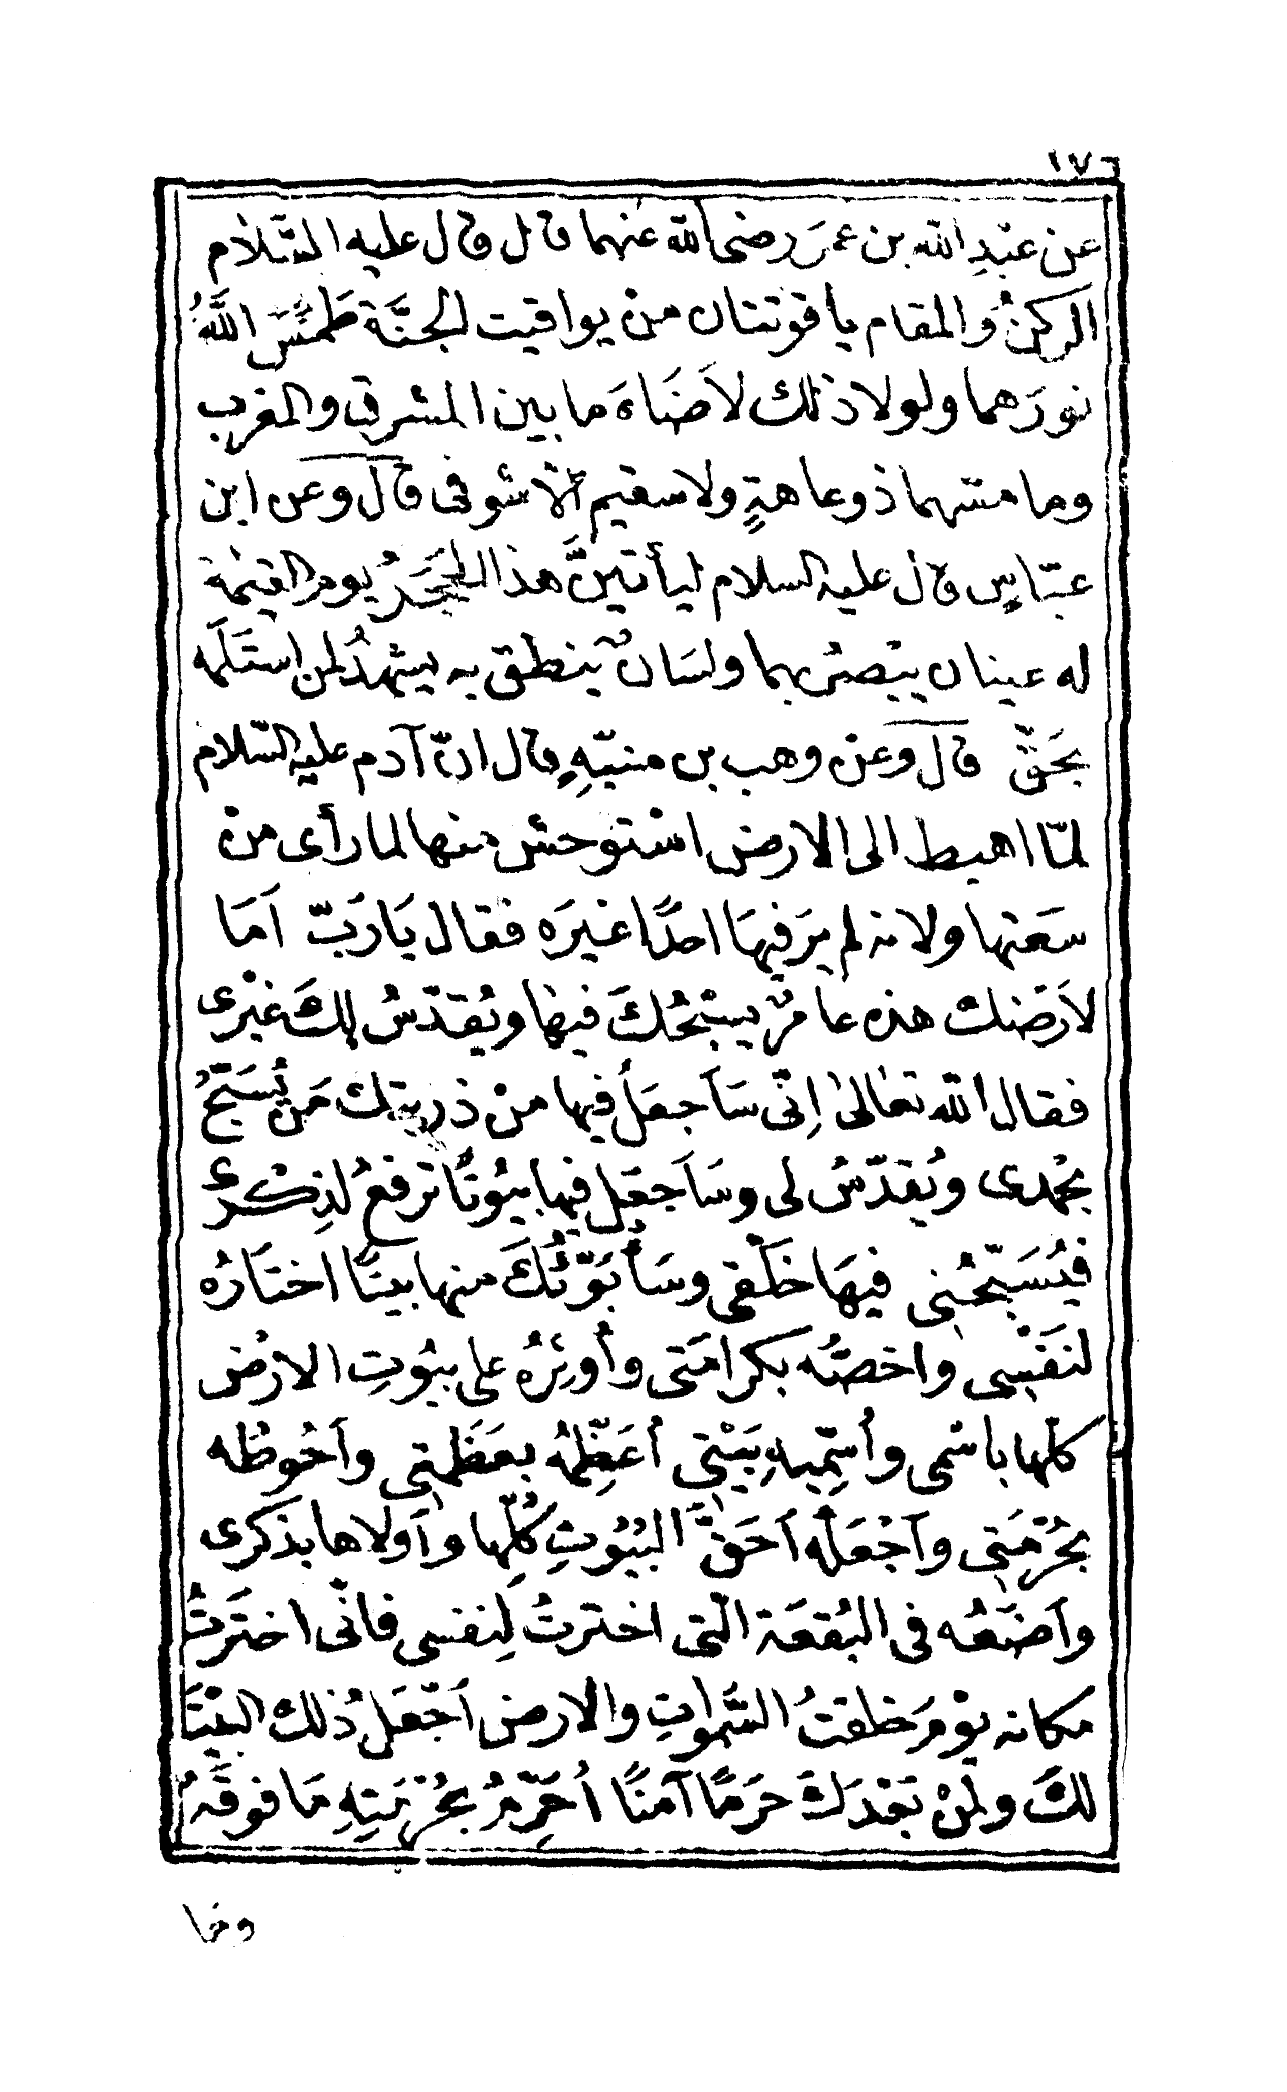 ١٧٦
عن عبْدِ الله بن عمَرَ رضى الله عنهما قال قال عليه السّلام
الركنُ والمقام ياقوتتان منْ يواقيت الجنَّة طَمَسَ اللَّهُ
نورَهما ولولا ذلك لاَضَاءَ ما بين المشرق والمغرب
وما مسّهما ذو عاهةٍ ولا سقيم اِلاّ شوفى قال وعن ابن
عبّاسٍ قال عليه السلام ليأتينَّ هذا الحَجَرُ يوم القيٰمة
له عينان يبْصرُ بهما ولسَانٌ ينطق به يشهدُ لمن استَلَمه
بحَقّ قال وعنْ وهب بن منبّهٍ قال انّ آدم عليه السّلام
لمّا اهبط الى الارض اسْتوحش منها لما رأى منْ
سَعتها ولانه لم يَرَ فيهَا احدًا غيرَه فقال يَا رَبّ اَمَا
لاَرْضك هذه عامرٌ يسبّحُكَ فيهٰا ويُقدّسُ لكَ غيْرى
فقال الله تعٰالىٰ اِنّى سَاَجعَلُ فيها منْ ذريتك مَن يُسَبّحُ
بحْمدى ويُقدّسُ لى وسَاَجعَل فيها بيُوتًا ترفعُ لذِكْرى
فيُسَبّحُنى فيهَا خَلْقى وسَأُبَوّئُكَ منها بيتًا اختَارُه
لنَفْسِى واخصّه بكرامَتى وأُوثِرُه على بيُوتِ الارْض
كلّها باسْمى وأسمّيهِ بَيْتى أعَظّمُه بعَظَمتى واَحُوطُه
بحُرْمَتى واَجْعَلُه اَحَقَّ البُيُوتِ كُلّها واَولاها بذكرى
واَضَعُه فى البُقعَة الّتى اخترتُ لِنفسى فانّى اختَرتُ
مكانه يوْمَ خلقتُ السَّمواتِ والارض اَجْعَلُ ذلك البيْتَ
لكَ ولمنْ بَعْدَكَ حرَمًا آمنًا أُحَرّمُ بحُرْمَتِهِ مَا فوقَهُ
وما